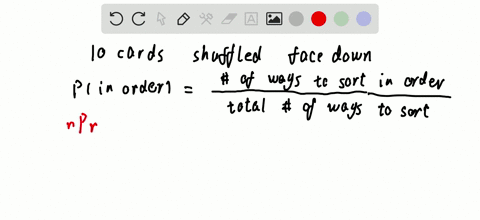 10 cards shuffled face down
P(in order) = # of ways to sort in order / total # of ways to sort
nPr